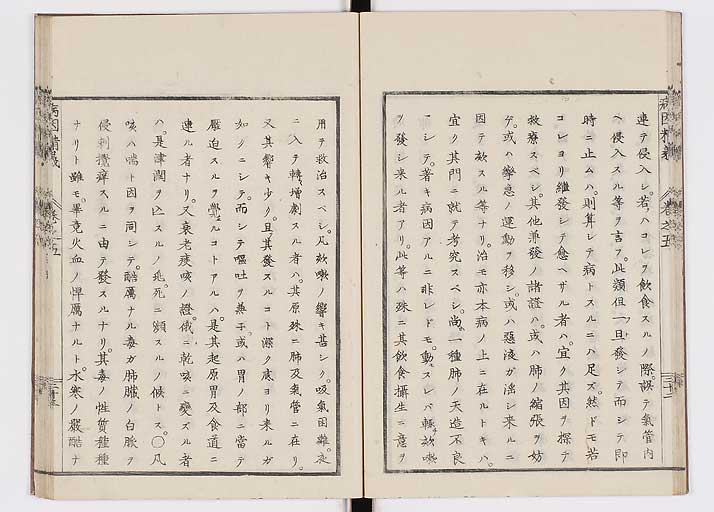 病因精義 卷之五
連テ侵入シ。若ハコレヲ飮食スルノ際。誤テ氣管内
ヘ侵入スル等ヲ言フ。此類但一旦發シテ而シテ即
時ニ止ムハ。則算シテ病トスルニハ足ズ然ドモ若
コレヨリ繼發シテ愈ヘザル者ハ。宜ク其因ヲ探テ
救療スベシ。其他兼發ノ諸證ハ。或ハ肺ノ縮張ヲ妨
ゲ。或ハ攣急ノ運動ヲ移シ或ハ惡液ガ滛シ來ルニ
因テ欬スル等ナリ。治モ亦本病ノ上ニ在ルトキハ。
宜ク其門ニ就テ考究スベシ。尚一種肺ノ天造不良
ニシテ。著キ病因アルニ非レドモ。動スレバ輙欬嗽
ヲ發シ来ル者アリ。此等ハ殊ニ其飮食攝生ニ意ヲ
用ヲ救治スベシ。凡欬嗽ノ響キ甚シク。吸氣困難。夜
ニ入テ轉增劇スル者ハ。其原殊ニ肺及氣管ニ在リ。
又其響キ少ク。且其發スルコト深ク底ヨリ来ルガ
如クニシテ。而シテ嘔吐ヲ兼子。或ハ胃ノ部ニ當テ
壓迫スルヲ覺ルコトアルハ。是其起原胃及食道ニ
連ル者ナリ。又衰老痰咳ノ證。俄ニ乾咳ニ變ズル者
ハ。是津潤ヲ亡スルノ兆。死ニ瀕スルノ候トス。〇凡
咳ハ喘ト因ヲ同シテ。酷厲ナル毒ガ肺臓ノ白脉ヲ
侵刺攪癢スルニ由テ發スルナリ。其毒ノ性質種種
ナリト雖モ。畢竟火血ノ悍厲ナルト。水寒ノ嚴酷ナ
病因精義 卷之五